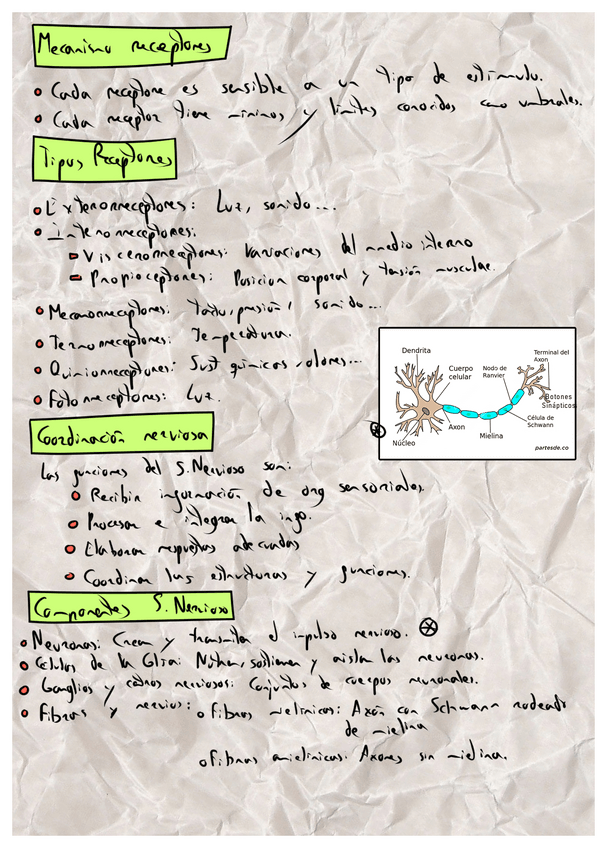 Mecanismo receptores
Cada receptore es sensible a un tipo de estímulo.
Cada receptor tiene mínimos y límites conocidos como umbrales.
Tipus Receptores
Exterorreceptores: Luz, sonido...
Interorreceptores:
Viscerorreceptores: Variaciones del medio interno
Propioceptores: Posicion corporal y tensión muscular.
Mecanorreceptores: Tacto, presión, sonido...
Termorreceptores: Temperatura.
Quimiorreceptores: Sust químicas, olores...
Fotorreceptores: Luz.
Dendrita
Cuerpo celular
Nodo de Ranvier
Terminal del Axon
Botones Sinápticos
Célula de Schwann
Axon
Mielina
Núcleo
partesde.co
Coordinación nerviosa
Las funciones del S.Nervioso son:
Recibir información de org sensoriales.
Procesar e integrar la info.
Elaborar respuestas adecuadas
Coordinar las estructuras y funciones.
Componentes S. Nervioso
Neuronas: Crean y transmiten el impulso nervioso.
Celulas de la Glia: Nutren, sostienen y aislan las neuronas.
Ganglios y centros nerviosos: Conjuntos de cuerpos neuronales.
Fibras y nervios: o Fibras mielínicas: Axón con Schwann rodeado
de mielina
o Fibras amielínicas: Axones sin mielina.